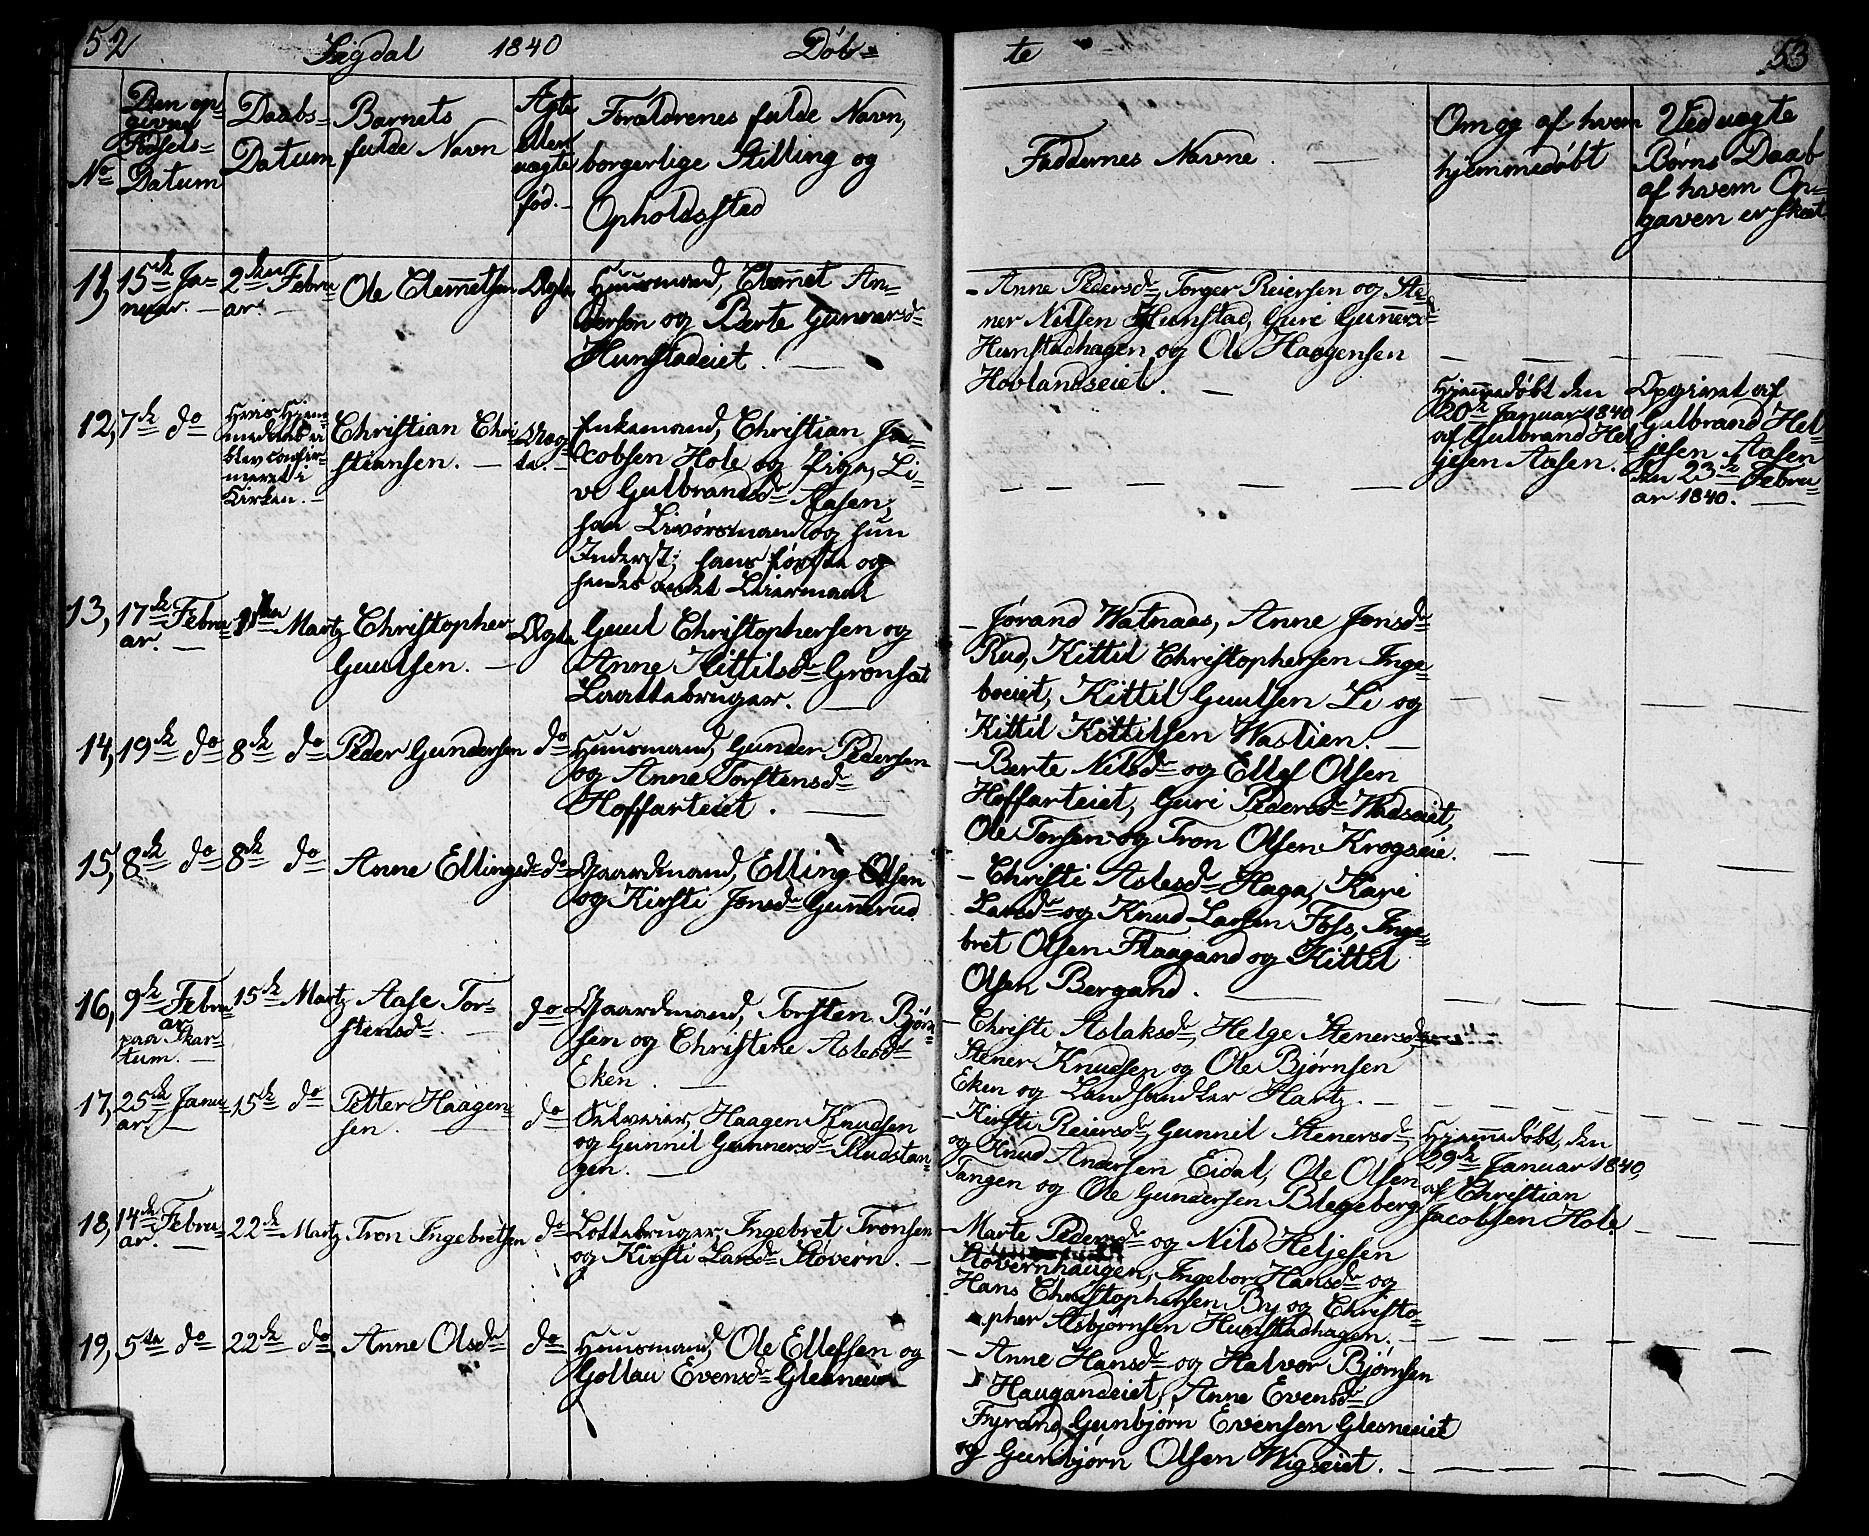 52 Sigdal 1840 Döb-
te 53
No
Den op-
givne
Födsels-
Datum
Daabs-
Datum
Barnets
fulde Navn
Ægte
eller
uægte
fød.
Forældrenes fulde Navn,
borgerlige Stilling og
Opholdsstad
Faddernes Navne.
Om og af hvem
hjemmedøbt
Ved uægte
Børns Daab
af hvem Op-
gaven er skeet
11, 15de Ja-
nuar.
2den Febru-
ar.
Ole Clemetsen
Ægte
Huusmand, Clemet An-
dersen og Berte Gunnersd
Hunstadeiet.
- Anne Pedersd, Torger Reiersen og Ste-
ner Nilsen Hunstad, Gure Gunersd
Hunstadhagen og Ole Haagensen
Hovlandseiet.
12, 7de do
Hvis Hjem-
medaab
blev confir-
meret i
Kirken.
Christian Chri-
stiansen.
Uæg-
te.
Enkemand, Christian Ja-
cobsen Hole og Pige, Li-
ve Gulbrandsd Aasen,
han og hun
Inderst; hans første og
hendes andet Leiermaal
Hjemmedøbt den
20de Januar 1840
af Gulbrand Hel-
jesen Aasen.
Opgivet af
Gulbrand Hel-
jesen Aasen
den 23de Febru-
ar 1840.
13, 17de Febru-
ar.
Martz
Christopher
Guulsen.
Ægte
Guul Christophersen og
Anne Kittilsd Grønhat
Laattebruger.
- Jørand Watnaas, Anne Jonsd
Rud, Kittil Christophersen Inge-
boeiet, Kittil Guulsen Li og
Kittil Kittilsen Waslien.
14, 19de do
8de do
Peder Gundersen
do
Huusmand, Gunder Pedersen
og Anne Torstensd
Hoffarteiet.
- Berte Nilsd og Ellef Olsen
Hoffarteiet, Guri Pedersd Wadseiet,
Ole Torsen og Tron Olsen Krogseie.
15, 8de do
8de do
Anne Ellingsd
do
Gaardmand, Elling Olsen
og Kirsti Jonsd Gunnerud
- Christi Aslesd Haga, Kari
Larsd og Knud Larsen Foss, Inge-
bret Olsen Flaagand og Kittil
Olsen Bergand.
16, 9de Febru-
ar
paa Skar-
tum.
15de Martz
Aase Tor-
stensd
do
Gaardmand, Torsten Bjørn-
sen og Christine Aslesd
Eken.
- Christi Aslaksd, Helge Stenersd,
Stener Knudsen og Ole Bjørnsen
Eken og Landhandler Hartz.
17, 25de Janu-
ar.
15de do
Petter Haagen-
sen.
do
Selveier, Haagen Knudsen
og Gunnil Gunnersd Rudstan-
gen.
- Kirsti Reiersd, Gunnil Stenersd
og Knud Andersen Eidal, Ole Olsen
Tangen og Ole Gundersen Blegeberg
Hjemmedøbt, den
29de Januar 1840,
af Christian
Jacobsen Hole.
18, 14de Febru-
ar.
22de Martz
Tron Ingebretsen
do
Lottebruger, Ingebret Tronsen
og Kirsti Larsd Stovern.
- Marte Pedersd og Nils Heljesen
Støvernhaugen, Ingebor Hansd og
Hans Christophersen By og Christo-
pher Asbjørnsen Hunstadhagen.
19, 5te do
22de do
Anne Olsd
do
Huusmand, Ole Ellefsen og
Gollau Evensd Glesneeie
- Anne Hansd og Halvor Bjørnsen
Hauganseiet, Anne Evensd
Fyrand, Gunbjørn Evensen Glesneeiet
og Gunbjørn Olsen Wigseiet.